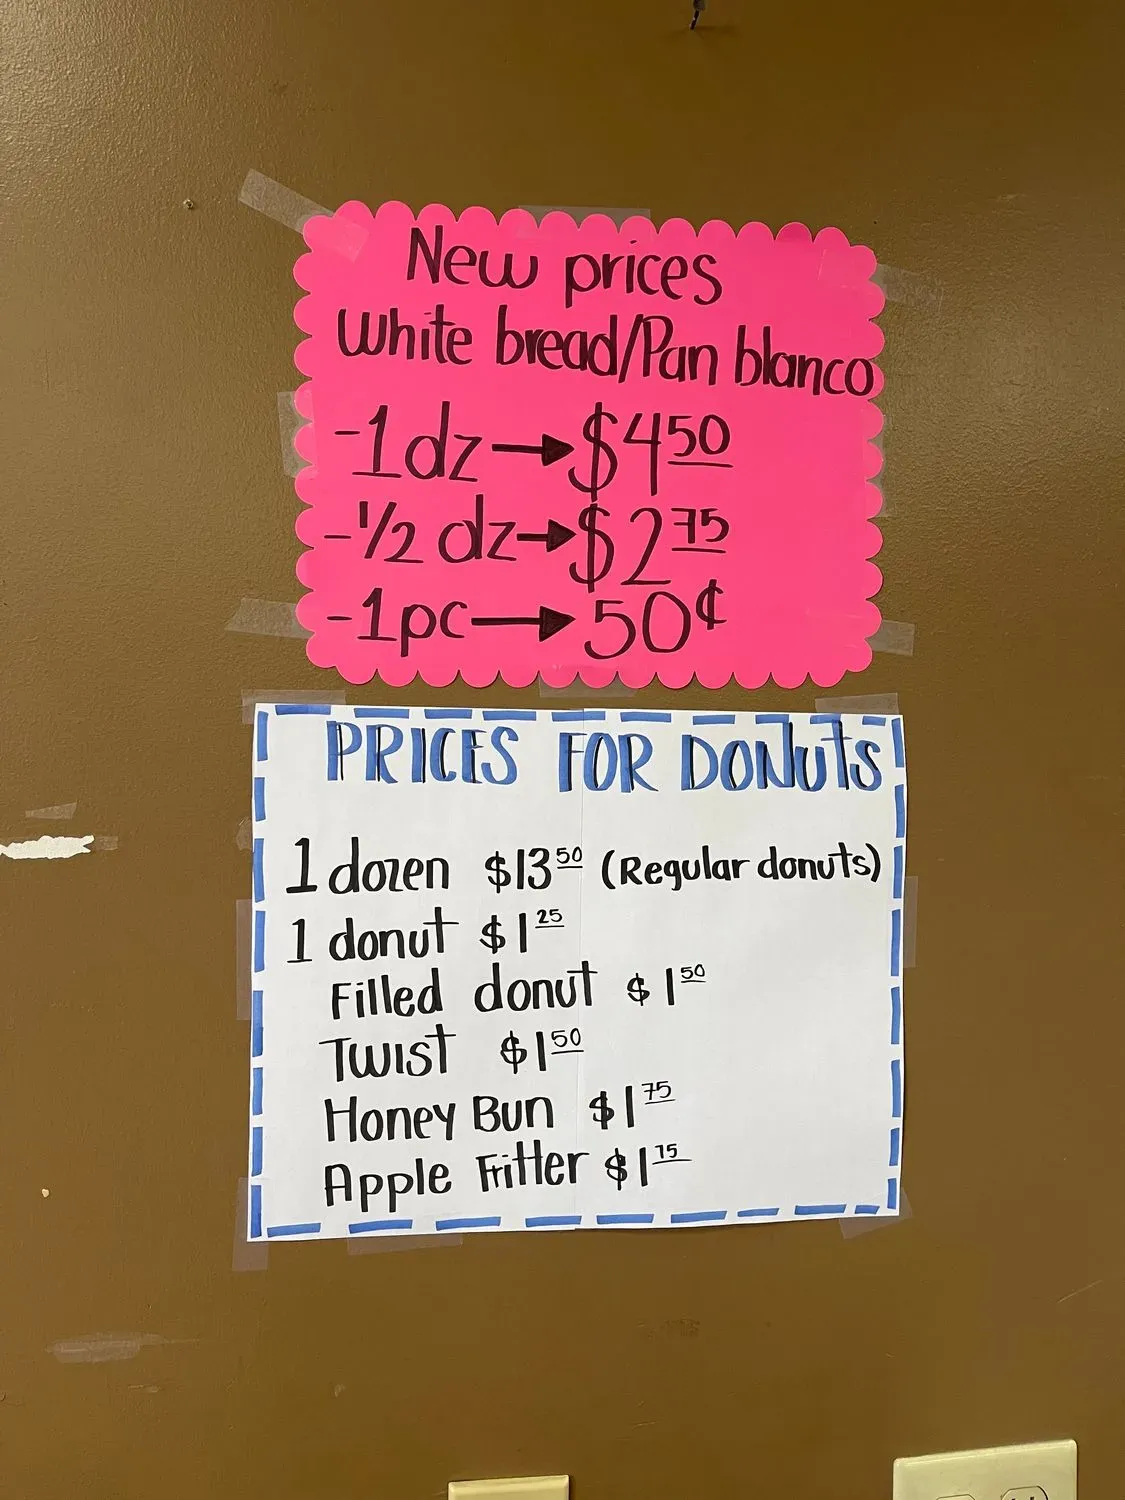 New prices
White bread/Pan blanco
-1dz→$4.50
-1/2 dz→$2.75
-1pc→50¢
PRICES FOR DONUTS
1 dozen $13.50 (Regular donuts)
1 donut $1.25
Filled donut $1.50
Twist $1.50
Honey Bun $1.75
Apple Fritter $1.75